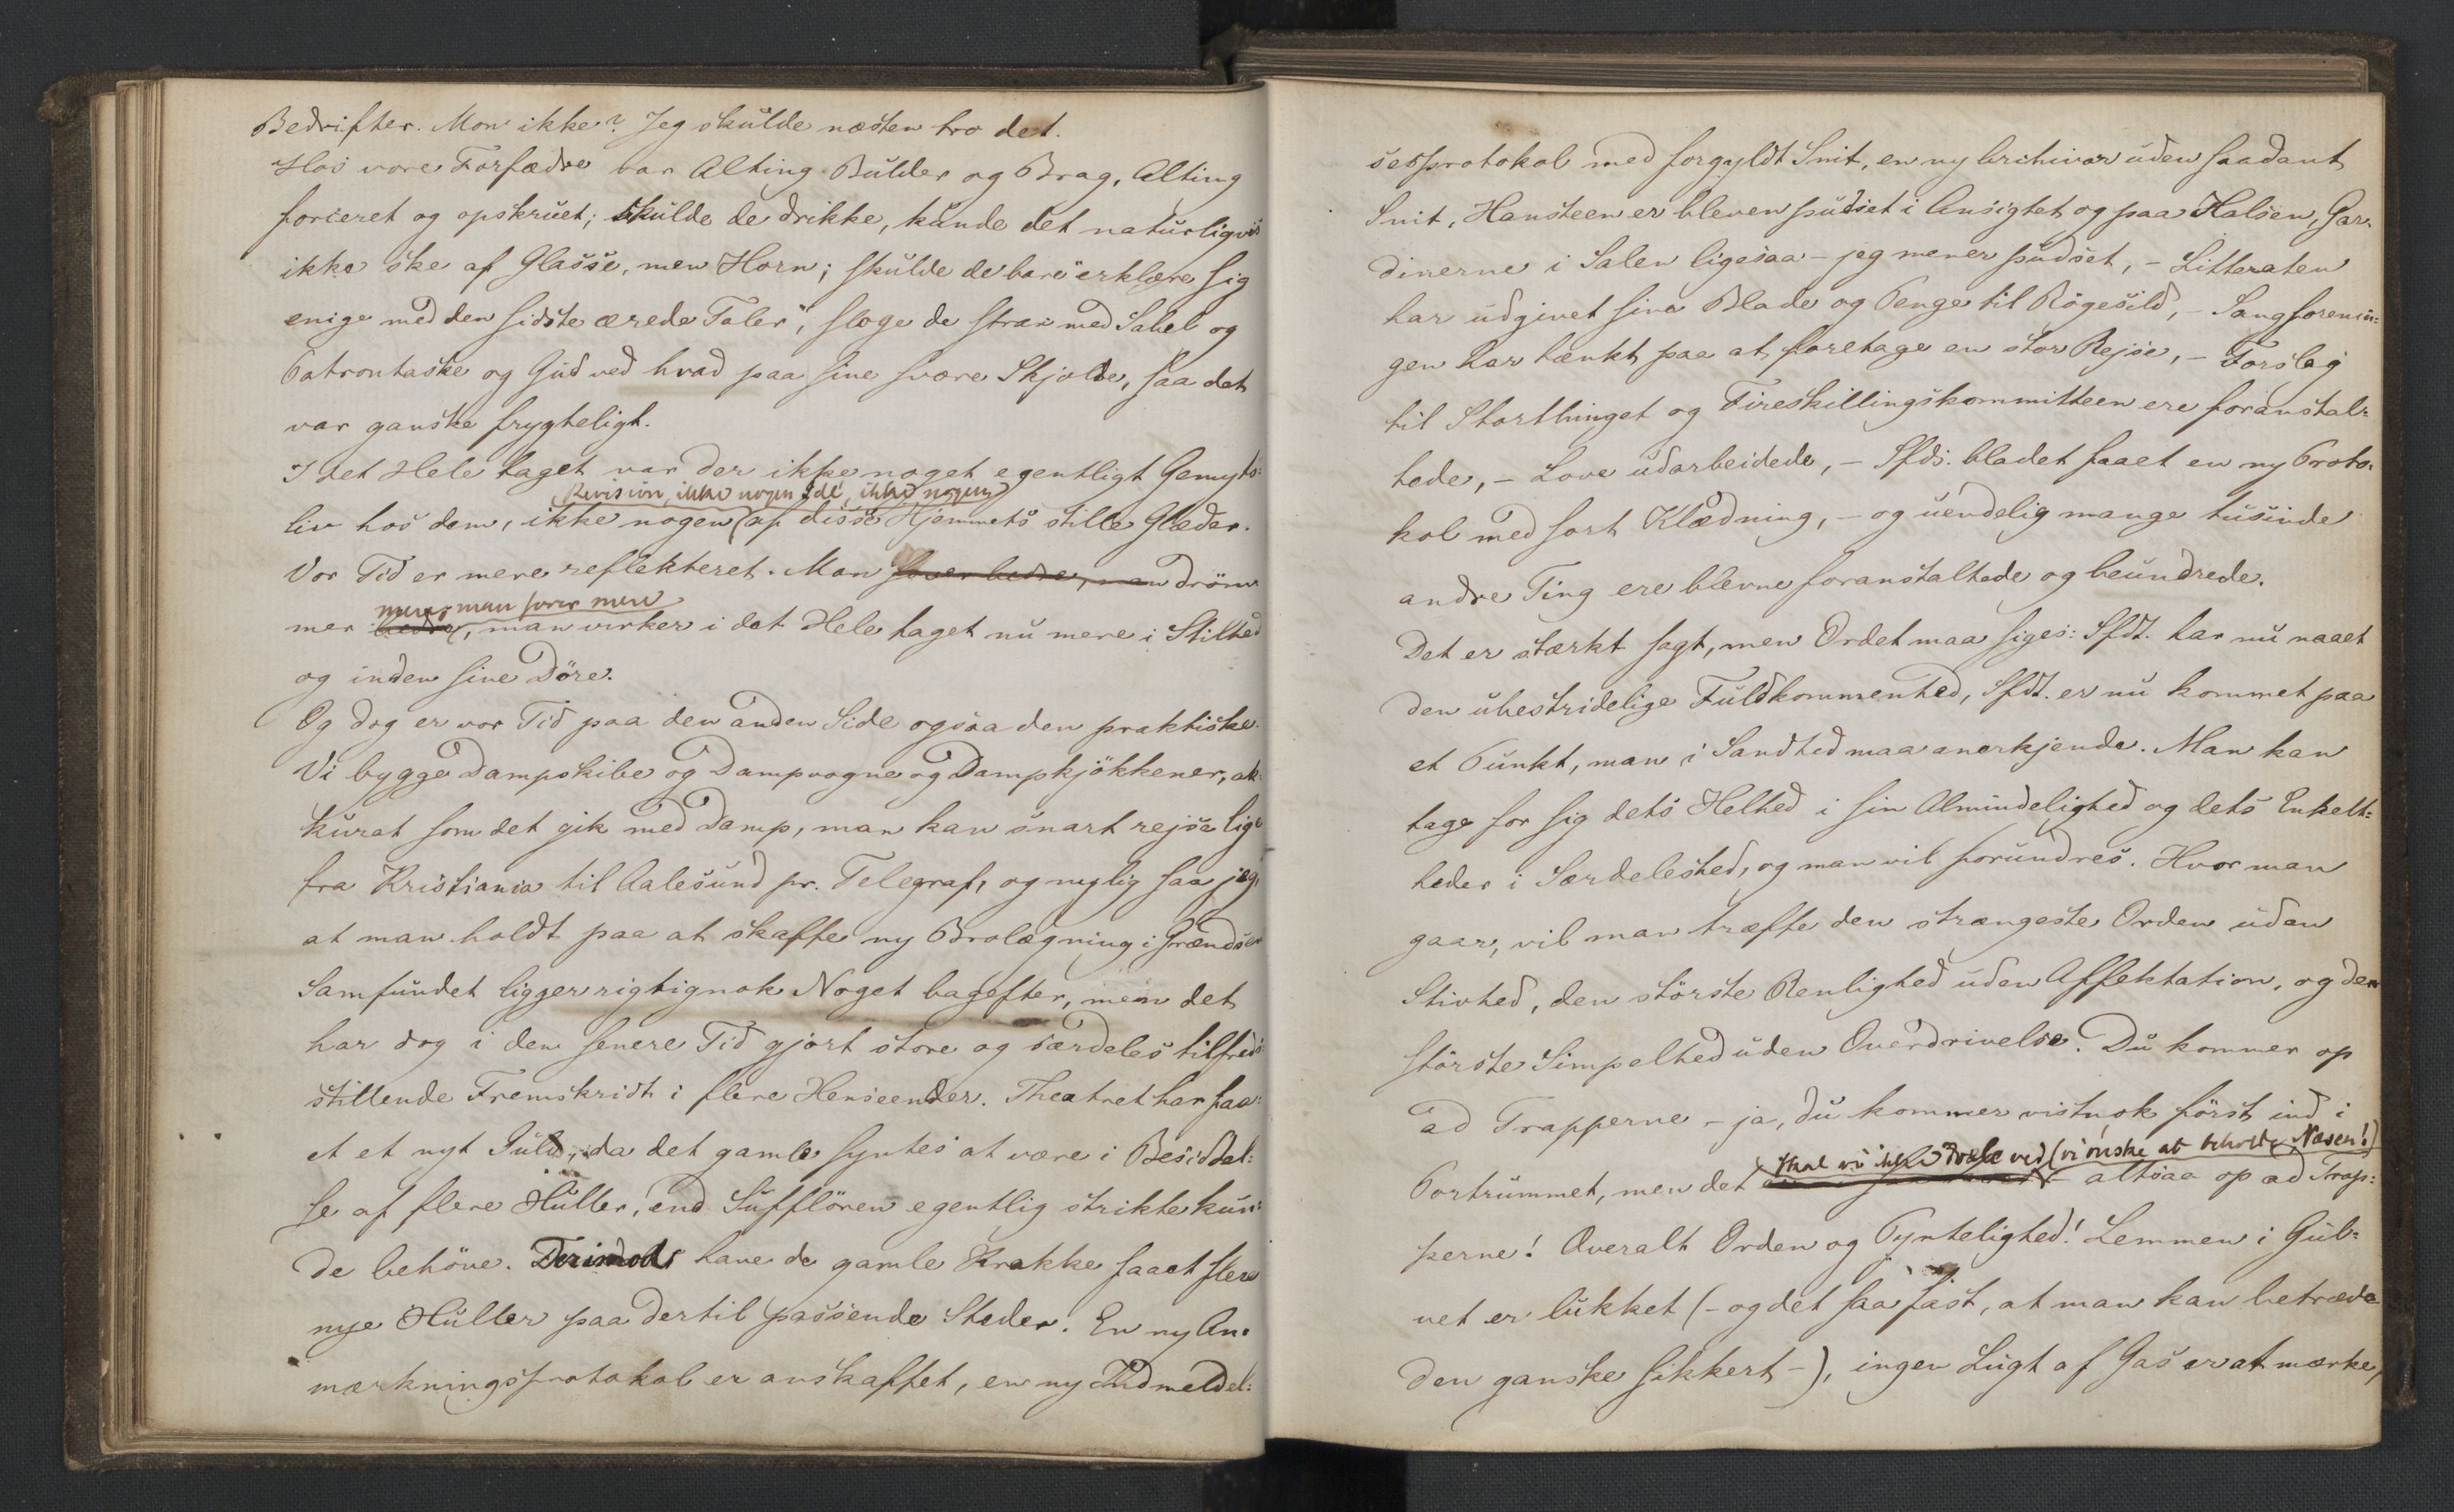 Bedrifter. Mon ikke? Jeg skulde næsten tro det.
Hos vore Forfædre var Alting Bulder og Brag, Alting
forceret og opskruet; skulde de drikke, kunde det naturligvis
ikke ske af Glasse, men Horn; skulde de bare "erklære sig
enige med den sidste ærede Taler", sloge de strax med Sabel og
Patrontaske og Gud ved hvad paa sine svære Skjolde, saa det
var ganske frygteligt.
I det Hele taget var der ikke noget egentligt Gemyts-
Revision, ikke nogen Idé, ikke nogen
liv hos dem, ikke nogen (af disse Hjemmets stille Glæder.
Vor Tid er mere reflekteret. Man sover bedre, man dröm-
mere, man sover mere
mer bedre, man virker i det Hele taget nu mere i Stilhed
og inden sine Döre.
Og dog er vor Tid paa den anden Side ogsaa den praktiske.
Vi bygge Dampskibe og Dampvogne og Dampkjökkener, ak-
kurat som det gik med Damp, man kan snart rejse lige
fra Kristiania til Aalesund pr. Telegraf, og nylig saa jeg,
at man holdt paa at skaffe ny Brolægning i Grændsen
Samfundet ligger rigtignok Noget bagefter, men det
har dog i den senere Tid gjort store og særdeles tilfreds-
stillende Fremskridt i flere Henseender. Theatret har faa-
et et nyt Gulv, da det gamle syntes at være i Besiddel-
se af flere Huller, end Sufflören egentlig strikte kun-
de behöve. Derimod have de gamle Krakke faaet flere
nye Huller paa dertil passende Steder. En ny An-
mærkningsprotokol er anskaffet, en ny Indmeldel-
sesprotokol med forgyldt Snit, en ny Archivar uden saadant
Snit, Hansteen er bleven pudset i Ansigtet og paa Halsen, Gar-
dinerne i Salen ligesaa – jeg mener pudset, – Litteraten
har udgivet sine Blade og Penge til Rögesild, – Sangforenin-
gen har tænkt paa at foretage en stor Rejse, – Forslag
til Storthinget og Fireskillingskommitteen ere foranstal-
tede, – Love udarbeidede, – Sfds. bladet faaet en ny Proto-
kol med sort Klædning, – og uendelig mange tusinde
andre Ting ere blevne foranstaltede og beundrede.
Det er stærkt sagt, men Ordet maa siges: Sfdt. har nu naaet
den ubestridelige Fuldkommenhed, Sfdt. er nu kommet paa
et Punkt, man i Sandhed maa anerkjende. Man kan
tage for sig dets Helhed i sin Almindelighed og dets Enkelt-
heder i Særdeleshed, og man vil forundres. Hvor man
gaar, vil man træffe den strængeste Orden uden
Stivhed, den störste Renlighed uden Affektation, og den
störste Simpelhed uden Overdrivelse. Du kommer op
ad Trapperne – ja, du kommer vistnok först ind i
skal vi ikke dvæle ved (vi önske at beholde Næsen!)
Portrummet, men det – altsaa op ad Trap-
perne! Overalt Orden og Pyntelighed! Lemmen i Gul-
vet er lukket (– og det saa fast, at man kan betræde
den ganske sikkert –), ingen Lugt af Gas er at mærke,